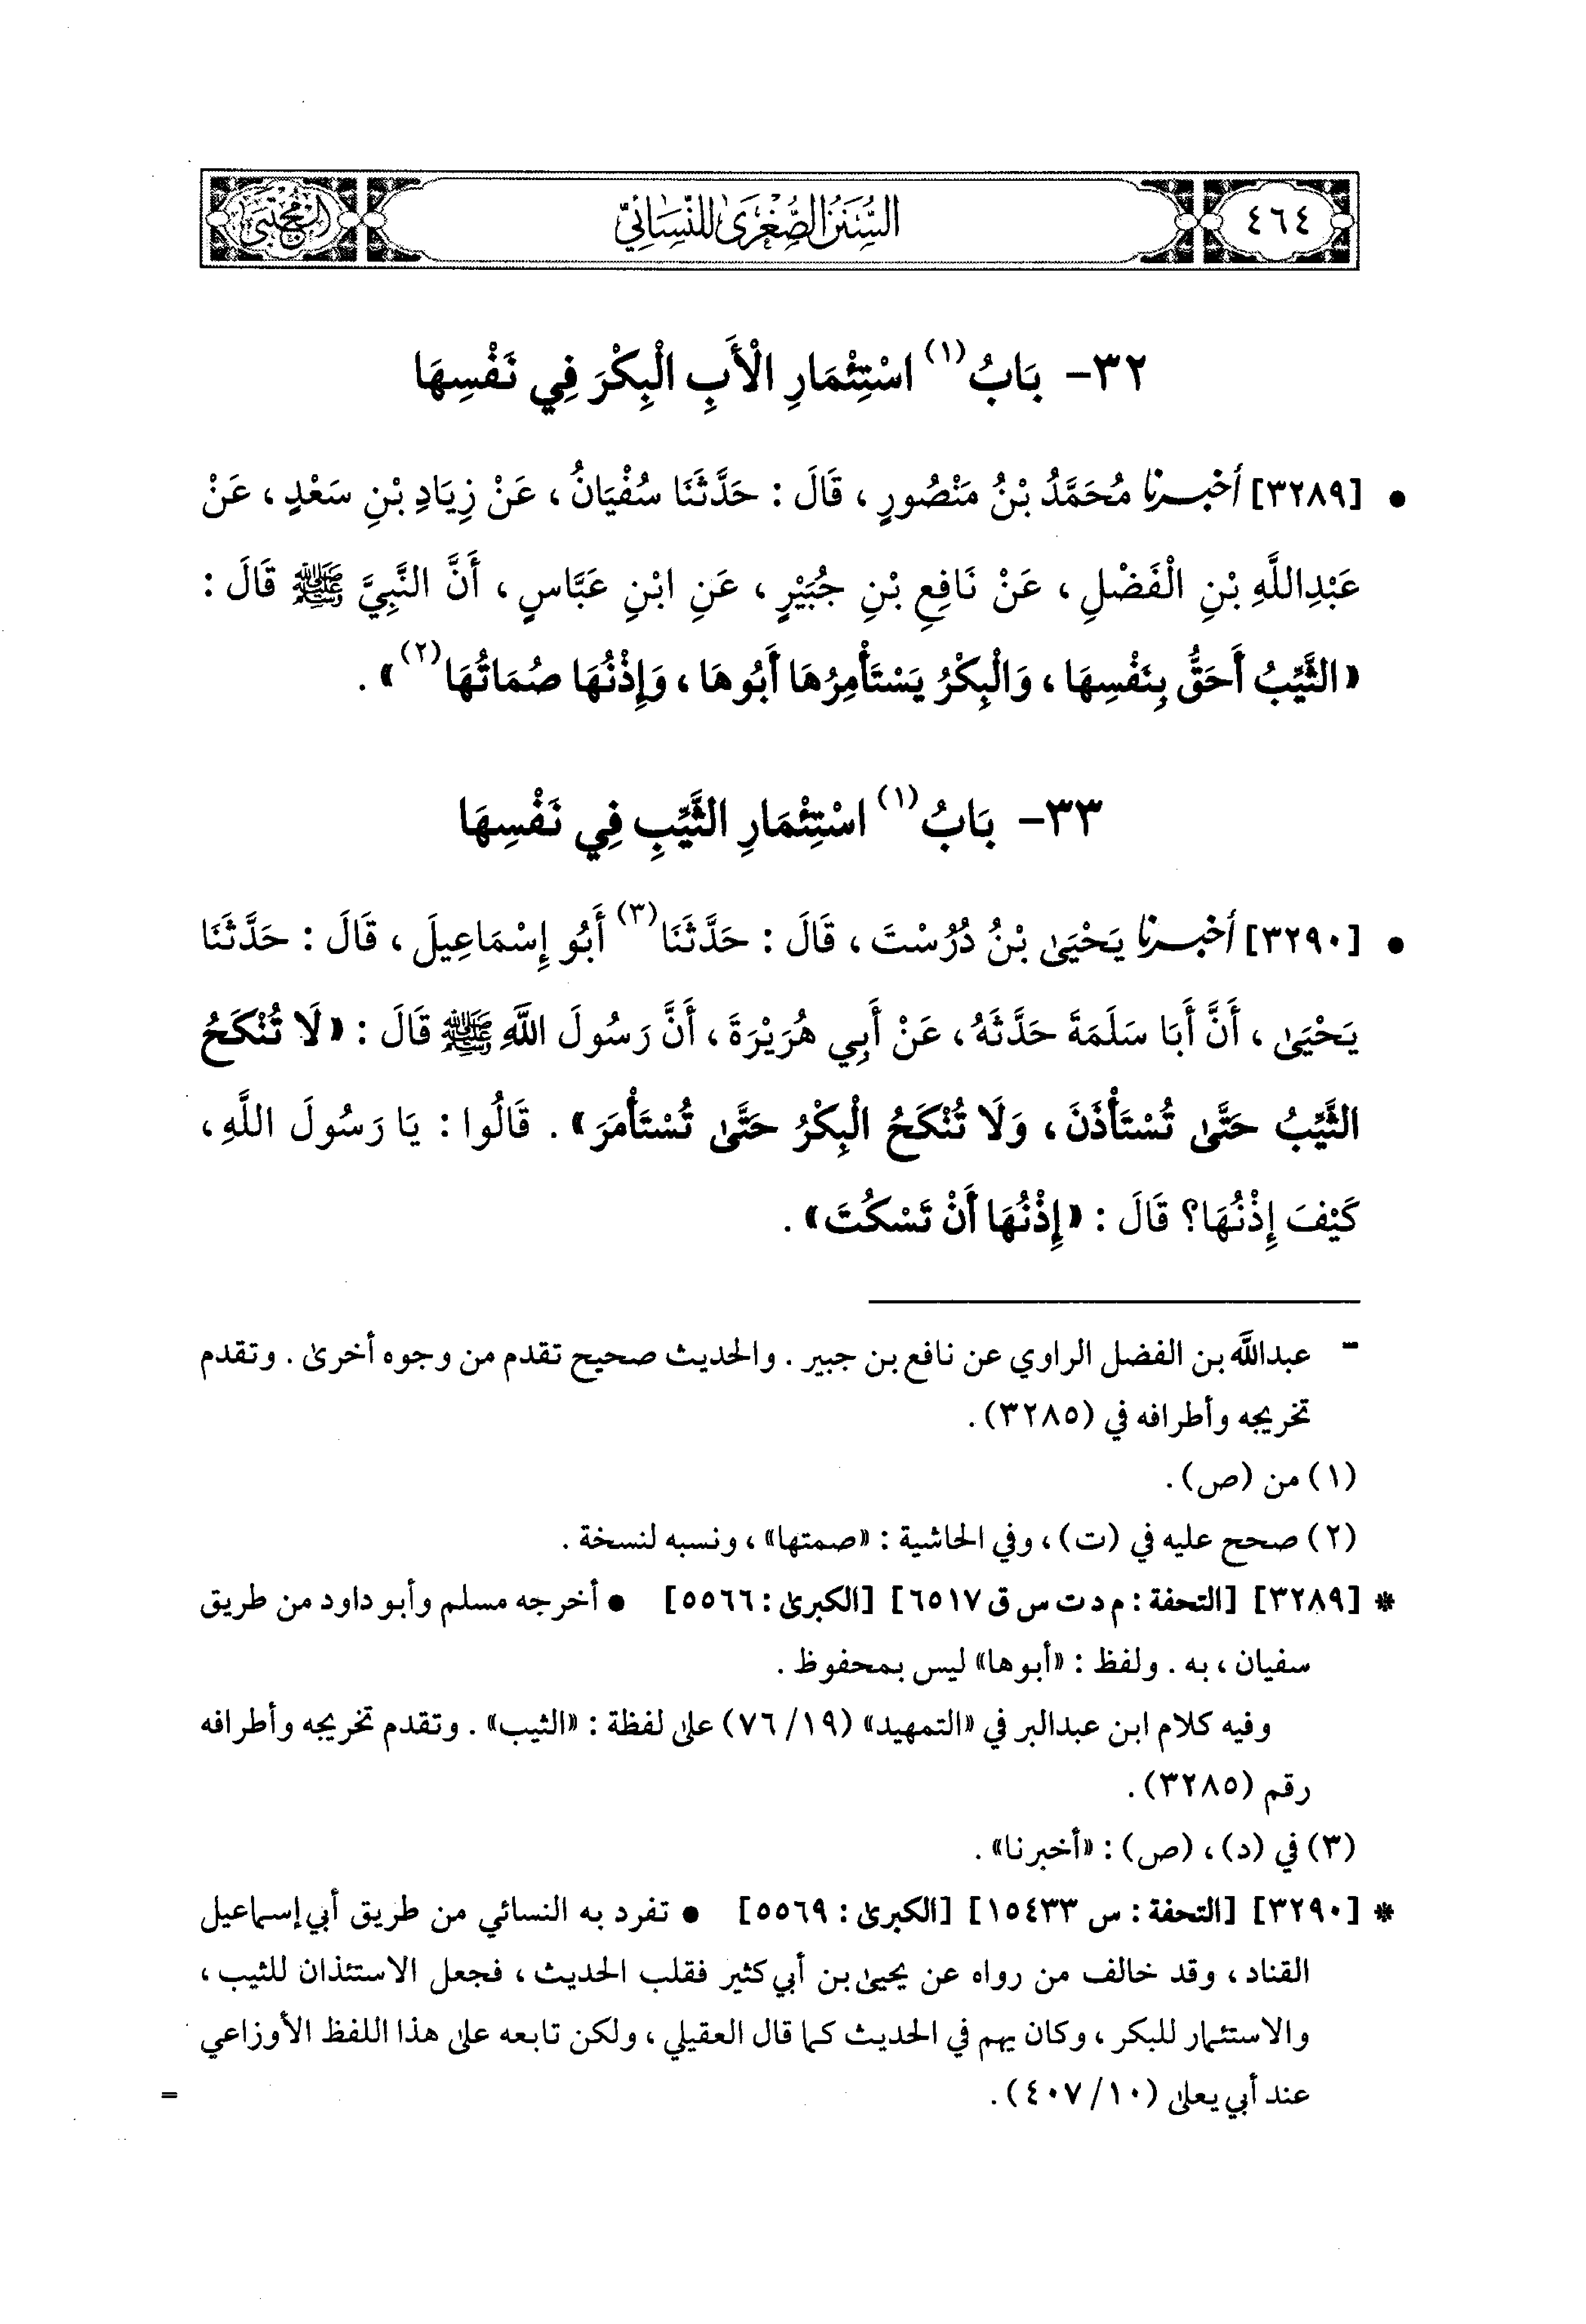 ٤٦٤
السُّنَنُ الصُّغْرَىٰ لِلنَّسَائِيّ
المجتبى
٣٢- بَابُ(١) اسْتِئْمَارِ الْأَبِ الْبِكْرَ فِي نَفْسِهَا
• [٣٢٨٩] أخبرنا مُحَمَّدُ بْنُ مَنْصُورٍ، قَالَ: حَدَّثَنَا سُفْيَانُ، عَنْ زِيَادِ بْنِ سَعْدٍ، عَنْ
عَبْدِاللَّهِ بْنِ الْفَضْلِ، عَنْ نَافِعِ بْنِ جُبَيْرٍ، عَنِ ابْنِ عَبَّاسٍ، أَنَّ النَّبِيَّ ﷺ قَالَ:
«الثَّيِّبُ أَحَقُّ بِنَفْسِهَا، وَالْبِكْرُ يَسْتَأْمِرُهَا أَبُوهَا، وَإِذْنُهَا صُمَاتُهَا(٢)».
٣٣- بَابُ(١) اسْتِئْمَارِ الثَّيِّبِ فِي نَفْسِهَا
• [٣٢٩٠] أخبرنا يَحْيَىٰ بْنُ دُرُسْتَ، قَالَ: حَدَّثَنَا(٣) أَبُو إِسْمَاعِيلَ، قَالَ: حَدَّثَنَا
يَحْيَىٰ، أَنَّ أَبَا سَلَمَةَ حَدَّثَهُ، عَنْ أَبِي هُرَيْرَةَ، أَنَّ رَسُولَ اللَّهِ ﷺ قَالَ: «لَا تُنْكَحُ
الثَّيِّبُ حَتَّىٰ تُسْتَأْذَنَ، وَلَا تُنْكَحُ الْبِكْرُ حَتَّىٰ تُسْتَأْمَرَ». قَالُوا: يَا رَسُولَ اللَّهِ،
كَيْفَ إِذْنُهَا؟ قَالَ: «إِذْنُهَا أَنْ تَسْكُتَ».
= عبداللَّه بن الفضل الراوي عن نافع بن جبير. والحديث صحيح تقدم من وجوه أخرىٰ. وتقدم
تخريجه وأطرافه في (٣٢٨٥).
(١) من (ص).
(٢) صحح عليه في (ت)، وفي الحاشية: «صمتها»، ونسبه لنسخة.
* [٣٢٨٩] [التحفة: م د ت س ق ٦٥١٧] [الكبرىٰ: ٥٥٦٦] • أخرجه مسلم وأبو داود من طريق
سفيان، به. ولفظ: «أبوها» ليس بمحفوظ.
وفيه كلام ابن عبدالبر في «التمهيد» (١٩/ ٧٦) علىٰ لفظة: «الثيب». وتقدم تخريجه وأطرافه
رقم (٣٢٨٥).
(٣) في (د)، (ص): «أخبرنا».
* [٣٢٩٠] [التحفة: س ١٥٤٣٣] [الكبرىٰ: ٥٥٦٩] • تفرد به النسائي من طريق أبي إسماعيل
القناد، وقد خالف من رواه عن يحيىٰ بن أبي كثير فقلب الحديث، فجعل الاستئذان للثيب،
والاستئمار للبكر، وكان يهم في الحديث كما قال العقيلي، ولكن تابعه علىٰ هذا اللفظ الأوزاعي
عند أبي يعلىٰ (١٠/ ٤٠٧).
=